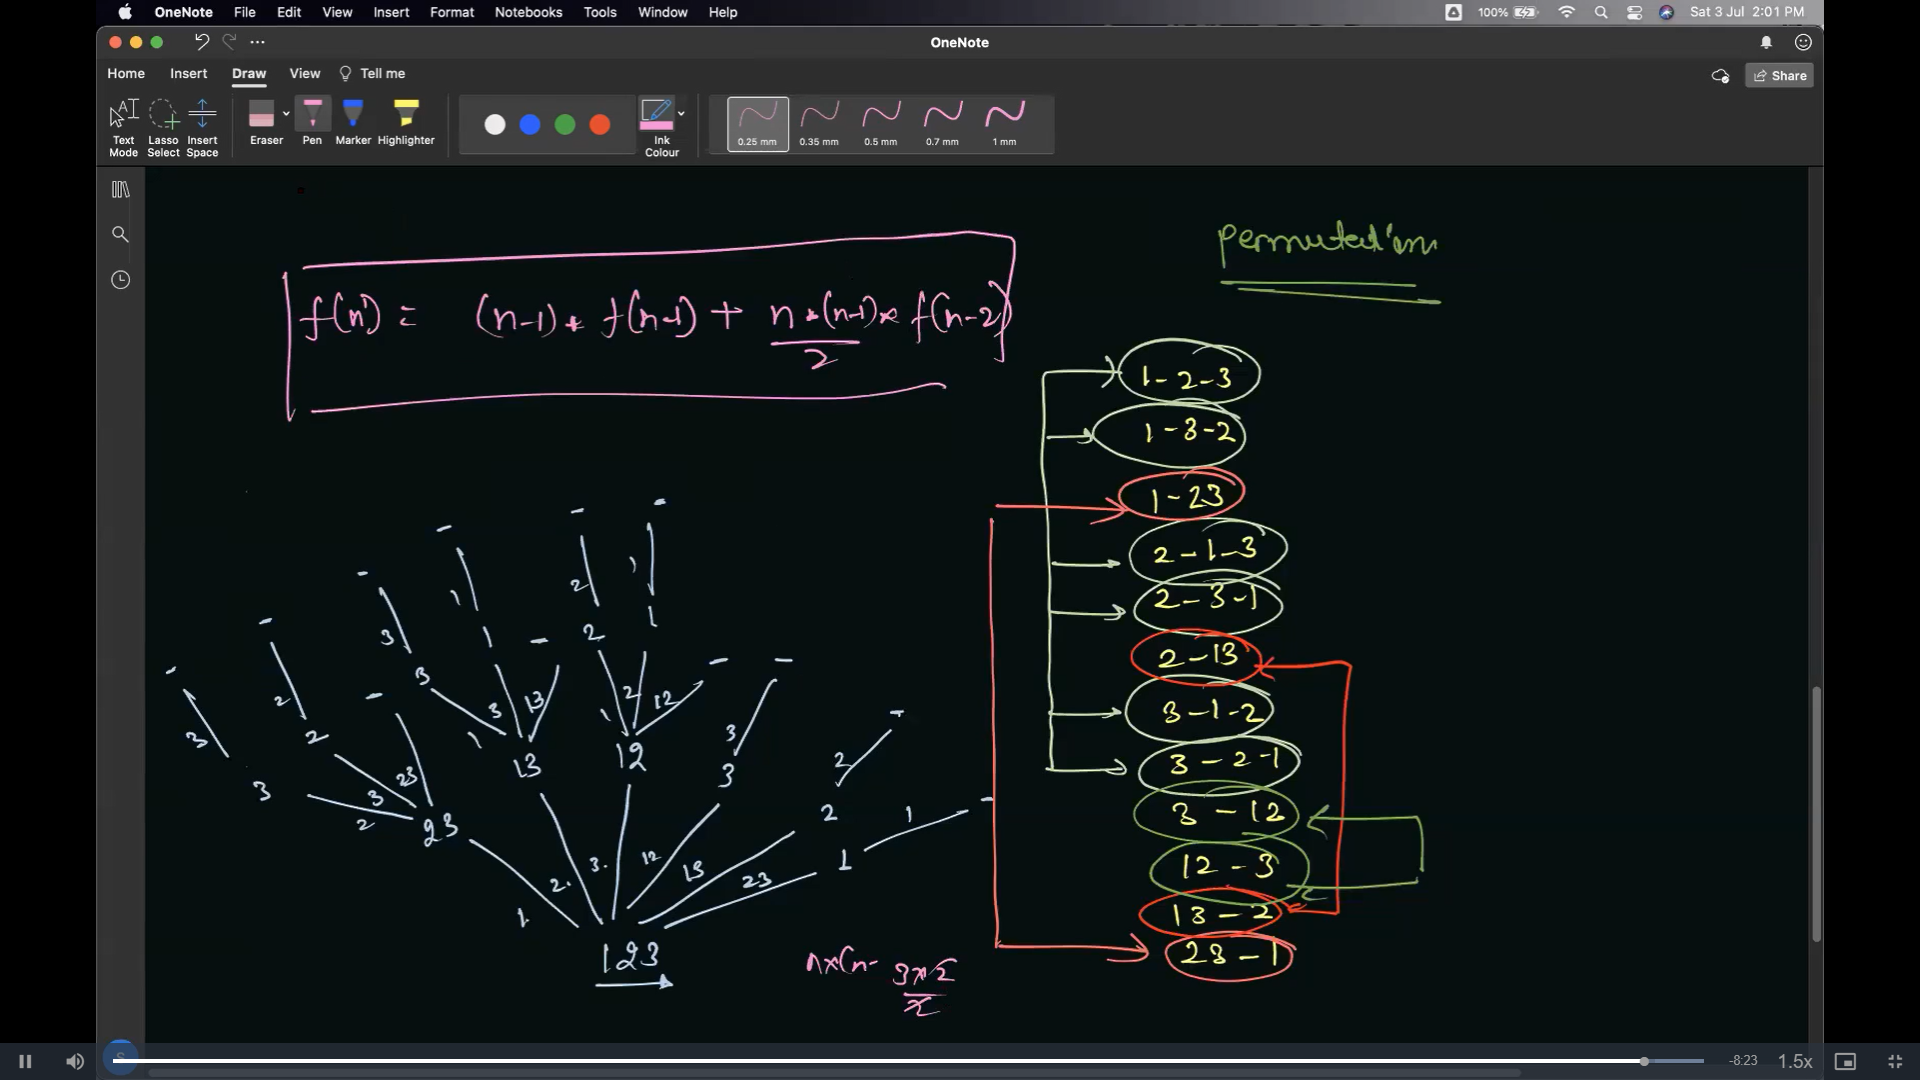 OneNote File Edit View Insert Format Notebooks Tools Window Help 100% Sat 3 Jul 2:01 PM
OneNote
Home Insert Draw View Tell me Share
Text Mode Lasso Select Insert Space Eraser Pen Marker Highlighter Ink Colour 0.25 mm 0.35 mm 0.5 mm 0.7 mm 1 mm
permutation
f(n) = (n-1) * f(n-1) + n * (n-1) * f(n-2)
2
1-2-3
1-3-2
1-23
2-1-3
2-3-1
2-13
3-1-2
3-2-1
3-12
12-3
13-2
23-1
- - -
2 1
- 1 2 1
- 3 1 - 2 1
- 3 3 13 1 2 12 - -
- 2 - 3 1 -
3 2 23 13 12 3 3 2
3 3 2 23 2 1 -
2. 3. 12 13 23 1
1.
123
n×(n- 3×2
2
-8:23 1.5x